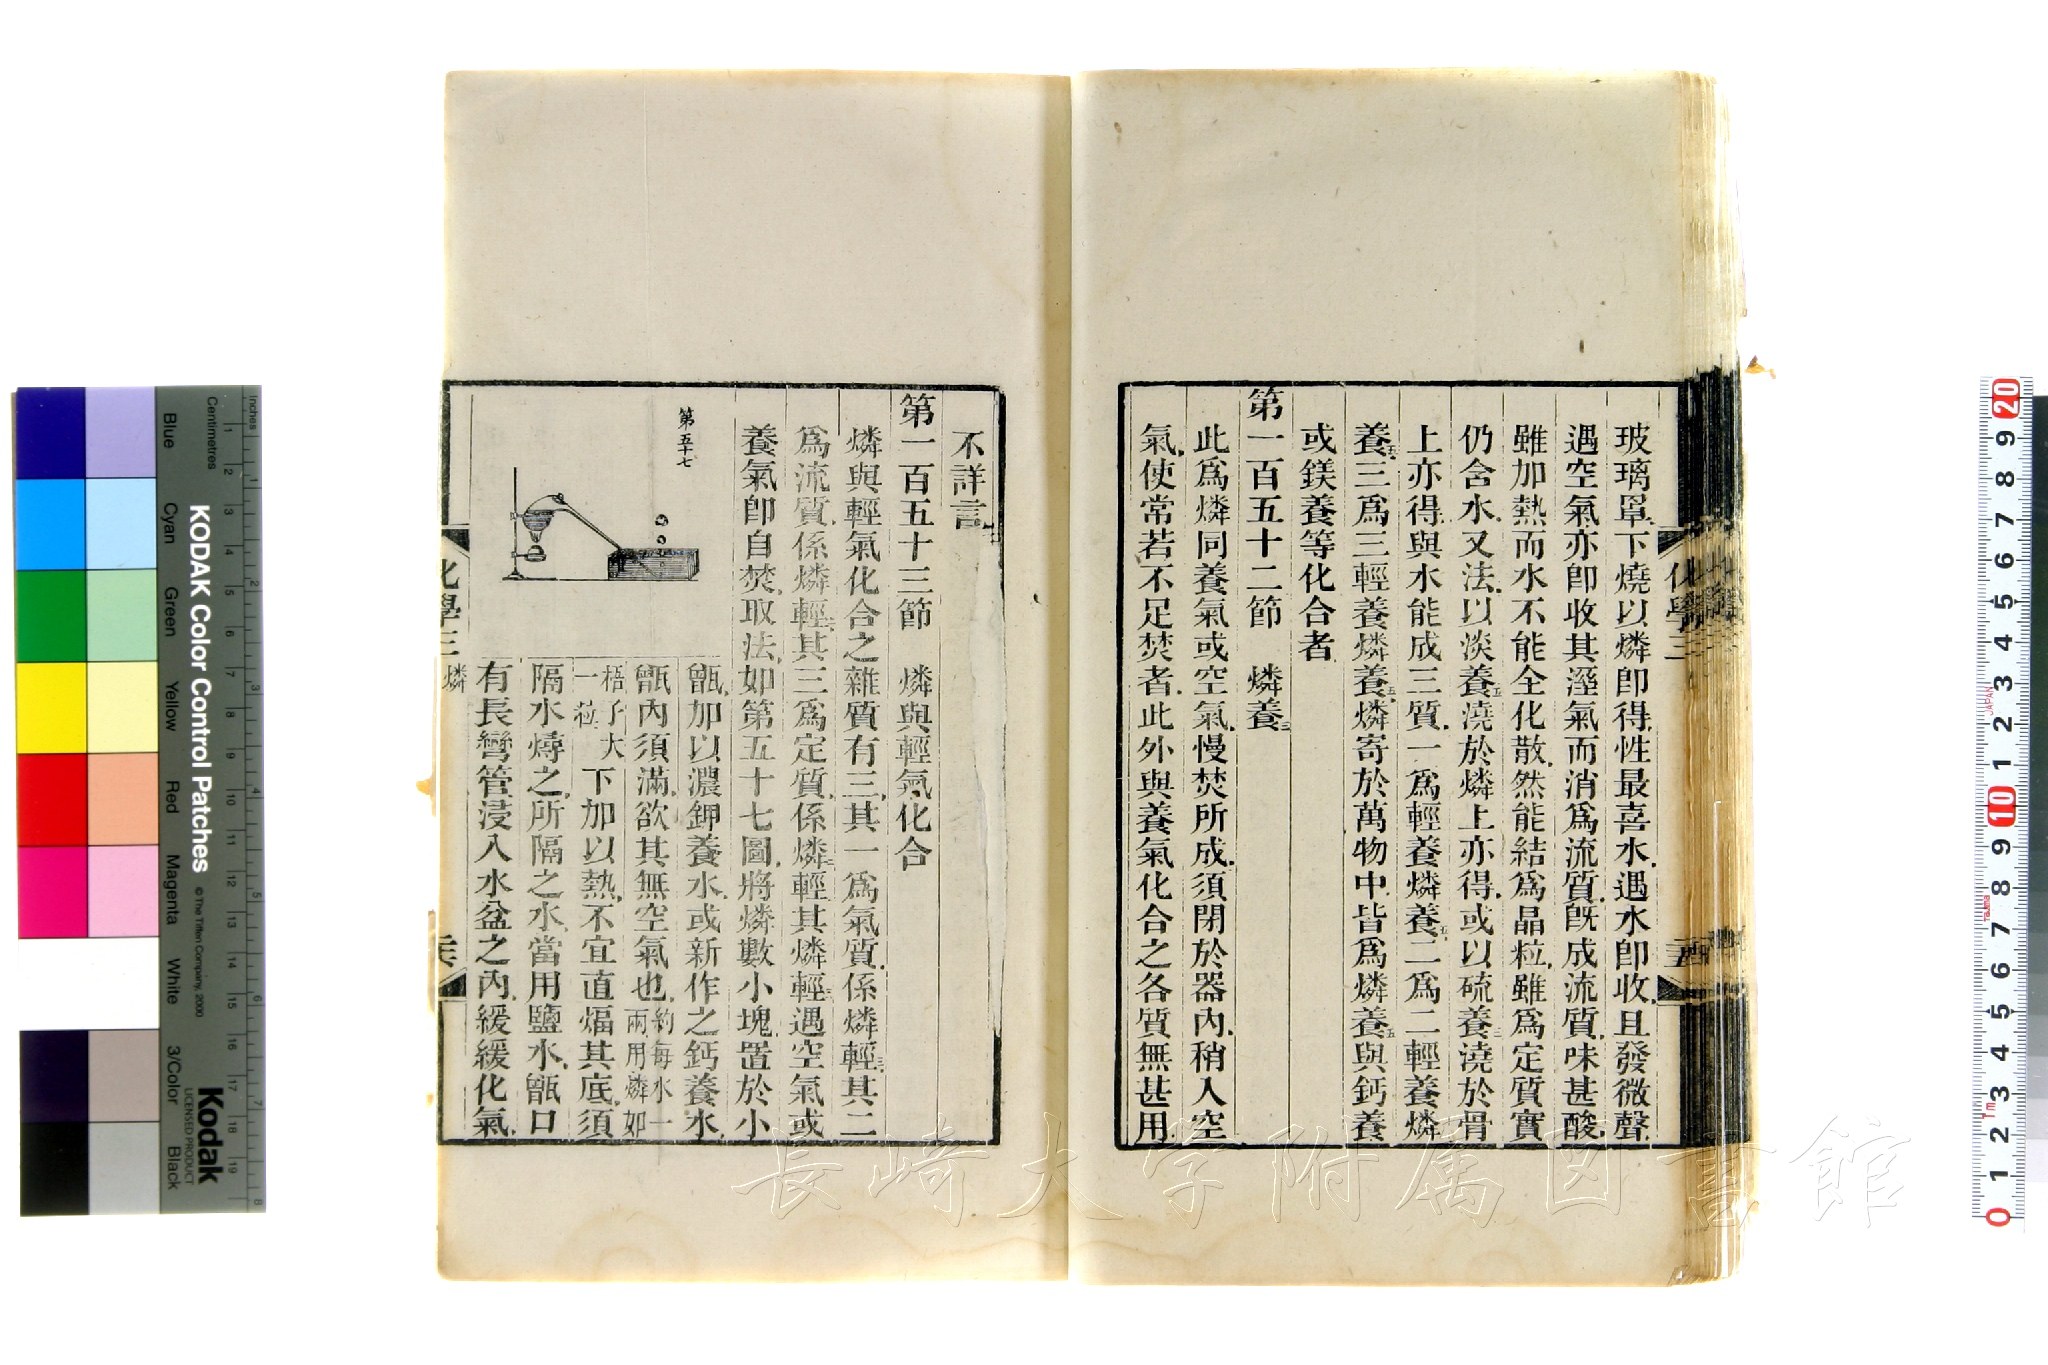 玻璃罩、下燒以燐卽得、性最喜水、遇水卽收、且發微聲、
遇空氣、亦卽收其溼氣而消爲流質、旣成流質、味甚酸、
雖加熱而水不能全化散、然能結爲晶粒、雖爲定質、實
仍含水、又法、以淡養五澆於燐上亦得、或以硫養三澆於骨
上亦得、與水能成三質、一爲輕養燐養五、二爲二輕養燐
養五、三爲三輕養燐養五、燐寄於萬物中、皆爲燐養五與鈣養
或鎂養等化合者
第一百五十二節 燐養三
此爲燐同養氣或空氣、慢焚所成、須閉於器內、稍入空
氣、使常若不足焚者、此外與養氣化合之各質無甚用、
化學三
不詳言、
第一百五十三節 燐與輕氣化合
燐與輕氣化合之雜質有三、其一爲氣質、係燐輕三、其二
爲流質、係燐輕二、其三爲定質、係燐二輕、其燐輕三遇空氣或
養氣卽自焚、取法、如第五十七圖、將燐數小塊、置於小
第五十七
甑、加以濃鉀養水、或新作之鈣養水、
甑內須滿、欲其無空氣也、約每水一兩、用燐如
梧子大一粒、下加以熱、不宜直煏其底、須
隔水燖之、所隔之水、當用鹽水、甑口
有長彎管、浸入水盆之內、緩緩化氣、
化學三
燐
KODAK Color Control Patches
© The Tiffen Company, 2000
Kodak
LICENSED PRODUCT
Inches
Centimetres
Blue
Cyan
Green
Yellow
Red
Magenta
White
3/Color
Black
長崎大学附属図書館
JAPAN